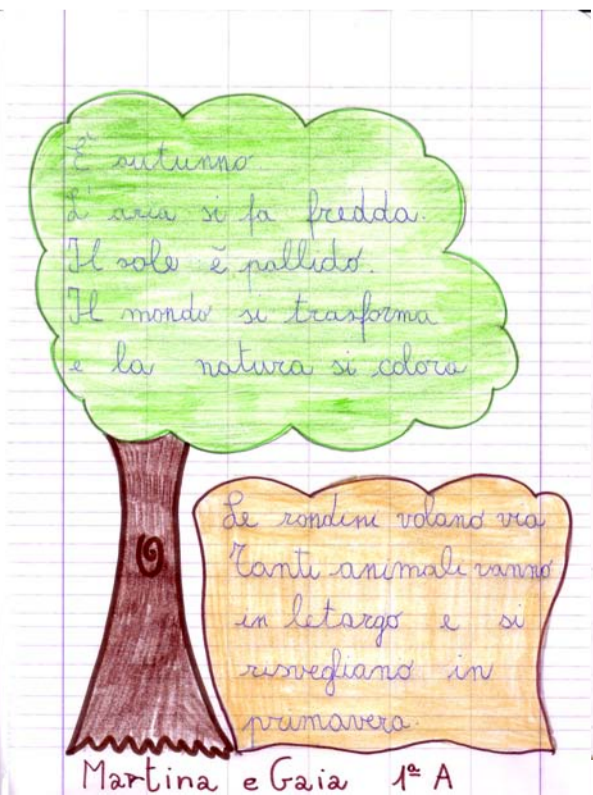 E' autunno.
L'aria si fa fredda.
Il sole è pallido.
Il mondo si trasforma
e la natura si colora
Le rondini volano via
Tanti animali vanno
in letargo e si
risvegliano in
primavera.
Martina e Gaia 1ª A